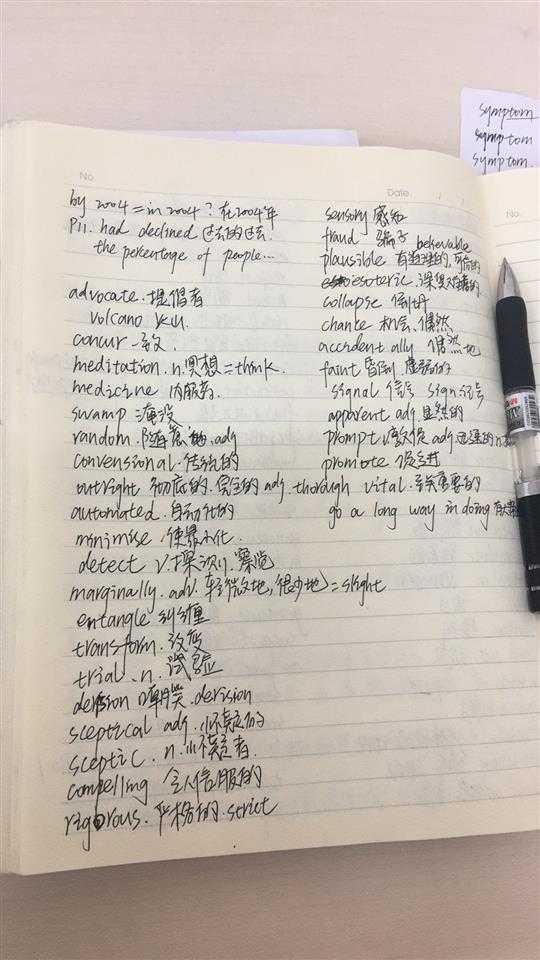 symptom
symptom
symptom
No.
Date
No.
by 2004 = in 2004? 在2004年
P11. had declined 过去的过去
the percentage of people...
advocate. 提倡者
volcano 火山
concur 一致
meditation. n. 冥想 = think.
medicine 内服药.
swamp 淹没
random. 随意的. adj
convensional. 传统的
outright 彻底的. 完全的 adj. thorough
automated. 自动化的
minimise. 使最小化.
detect v. 探测. 察觉
marginally. adv. 轻微地, 很少地 = slight
entangle 纠缠
transform. 改变
trial. n. 试验
derision 嘲笑. derision
sceptical adj. 怀疑的
sceptic. n. 怀疑者.
compelling 令人信服的
rigorous. 严格的. strict
sensory 感知
fraud 骗子 believable
plausible 有道理的, 可信的
esoteric. 深奥难懂的
collapse 倒坍
chance 机会. 偶然
accident ally 偶然地
faint 昏倒. 虚弱的
signal 信号 sign 记号
apparent adj 显然的
prompt v. 敦促 adj 迅速的 n.
promote 促进
vital. 至关重要的
go a long way in doing